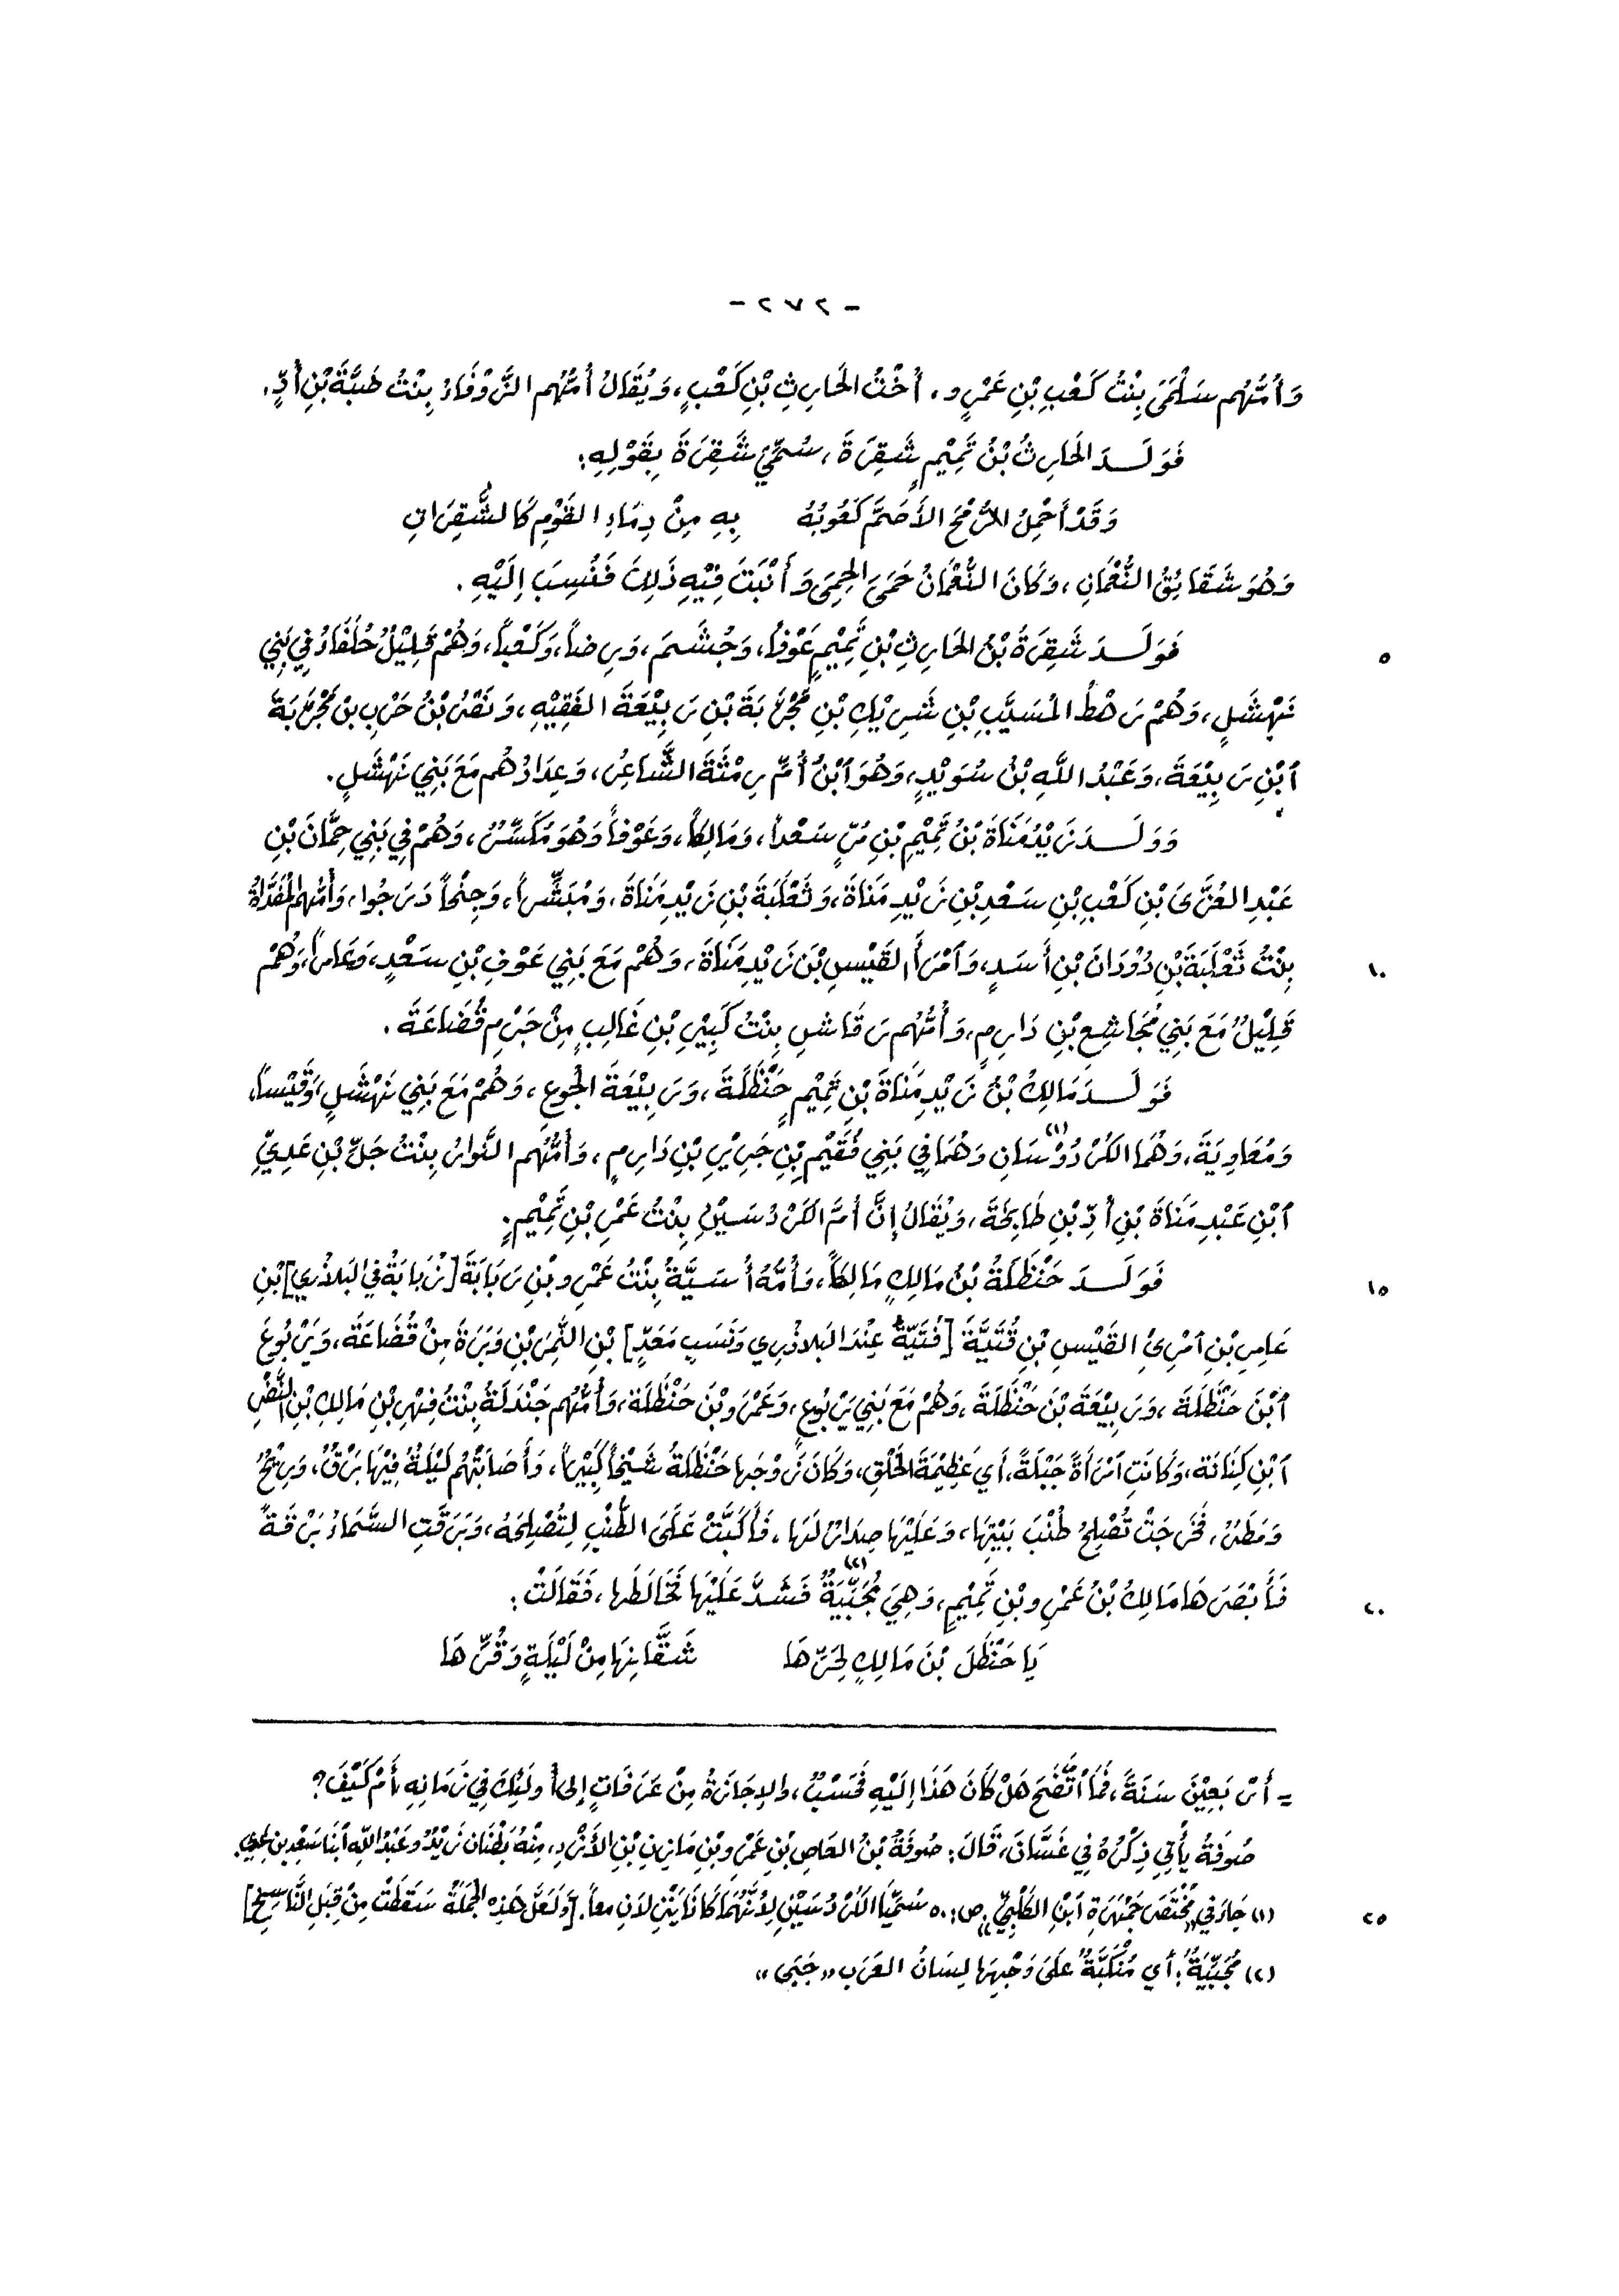 - ٢٧٢ -
وَأُمُّهُم سَلْمَى بِنْتُ كَعْبِ بْنِ عَمْرٍو، أُخْتُ الحَارِثِ بْنِ كَعْبٍ، وَيُقَالُ أُمُّهُم الزَّرْفَاءُ بِنْتُ ضَبَّةَ بْنِ أُدٍّ.
فَوَلَدَ الحَارِثُ بْنُ تَمِيْمٍ شَقِرَةَ، سُمِّيَ شَقِرَةَ بِقَوْلِهِ:
وَقَدْ أَحْمِلُ الرُّمْحَ الأَصَمَّ كُعُوبُهُ بِهِ مِنْ دِمَاءِ القَوْمِ كَالشَّقِرَاتِ
وَهُوَ شَقَائِقُ النُّعْمَانِ، وَكَانَ النُّعْمَانُ حَمَى الحِمَى وَأَنْبَتَ فِيْهِ ذَلِكَ فَنُسِبَ إِلَيْهِ.
٥ فَوَلَدَ شَقِرَةُ بْنُ الحَارِثِ بْنِ تَمِيْمٍ عَوْفاً، وَجُشَمَ، وَرِضاً، وَكَعْباً، وَهُمْ قَلِيْلٌ حُلَفَاءُ فِي بَنِي
نَهْشَلٍ، وَهُمْ رَهْطُ المُسَيَّبِ بْنِ شَرِيْكِ بْنِ مُجْرَبَةَ بْنِ رَبِيْعَةَ الفَقِيْهِ، وَنَصْرُ بْنُ حَرْبِ بْنِ مُجْرَبَةَ
ٱبْنِ رَبِيْعَةَ، وَعَبْدُ اللَّهِ بْنُ سُوَيْدٍ، وَهُوَ ٱبْنُ أُمِّ رِمْثَةَ الشَّاعِرُ، وَعِدَادُهُم مَعَ بَنِي نَهْشَلٍ.
وَوَلَدَ زَيْدُ مَنَاةَ بْنُ تَمِيْمِ بْنِ مُرٍّ سَعْداً، وَمَالِكاً، وَعَوْفاً وَهُوَ مُكَسِّرٌ، وَهُمْ فِي بَنِي حِمَّانَ بْنِ
عَبْدِ العُزَّى بْنِ كَعْبِ بْنِ سَعْدِ بْنِ زَيْدِ مَنَاةَ، وَثَعْلَبَةَ بْنِ زَيْدِ مَنَاةَ، وَمُبَشِّراً، وَجِنْحاً دَرَجُوا، وَأُمُّهُم المُفَدَّاةُ
١٠ بِنْتُ ثَعْلَبَةَ بْنِ دُوْدَانَ بْنِ أَسَدٍ، وَٱمْرَأَ القَيْسِ بْنَ زَيْدِ مَنَاةَ، وَهُمْ مَعَ بَنِي عَوْفِ بْنِ سَعْدٍ، وَعَامِراً، وَهُمْ
قَلِيْلٌ مَعَ بَنِي مُجَاشِعِ بْنِ دَارِمٍ، وَأُمُّهُم رَقَاشِ بِنْتُ كَبِيْرِ بْنِ غَالِبٍ مِنْ جَرْمِ قُضَاعَةَ.
فَوَلَدَ مَالِكُ بْنُ زَيْدِ مَنَاةَ بْنِ تَمِيْمٍ حَنْظَلَةَ، وَرَبِيْعَةَ الجُوعِ، وَهُمْ مَعَ بَنِي نَهْشَلٍ، وَقَيْساً،
وَمُعَاوِيَةَ، وَهُمَا الكُرْدُوْسَانِ(١) وَهُمَا فِي بَنِي فُقَيْمِ بْنِ جَرِيْرِ بْنِ دَارِمٍ، وَأُمُّهُم النَّوَارُ بِنْتُ جَلِّ بْنِ عَدِيِّ
ٱبْنِ عَبْدِ مَنَاةَ بْنِ أُدِّ بْنِ طَابِخَةَ، وَيُقَالُ إِنَّ أُمَّ الكُرْدُسَيْنِ بِنْتُ عَمْرِو بْنِ تَمِيْمٍ.
١٥ فَوَلَدَ حَنْظَلَةُ بْنُ مَالِكٍ مَالِكاً، وَأُمُّهُ أُسَيَّةُ بِنْتُ عَمْرِو بْنِ رَبَابَةَ [زَبَابَةُ فِي البَلاذُرِي] بْنِ
عَامِرِ بْنِ ٱمْرِئِ القَيْسِ بْنِ قُتَيَّةَ [فُتَيَّةُ عِنْدَ البَلاذُرِي وَنَسَبِ مَعَدٍّ] بْنِ النَّمِرِ بْنِ وَبَرَةَ مِنْ قُضَاعَةَ، وَيَرْبُوعَ
ٱبْنَ حَنْظَلَةَ، وَرَبِيْعَةَ بْنَ حَنْظَلَةَ، وَهُمْ مَعَ بَنِي يَرْبُوعٍ، وَعَمْرَو بْنَ حَنْظَلَةَ، وَأُمُّهُم جَنْدَلَةُ بِنْتُ فِهْرِ بْنِ مَالِكِ بْنِ النَّضْرِ
ٱبْنِ كِنَانَةَ، وَكَانَتِ ٱمْرَأَةً جَبْلَةً، أَي عَظِيْمَةَ الخَلْقِ، وَكَانَ زَوْجُهَا حَنْظَلَةُ شَيْخاً كَبِيْراً، وَأَصَابَتْهُمْ لَيْلَةٌ فِيْهَا بَرْقٌ، وَرِيْحٌ
وَمَطَرٌ، فَخَرَجَتْ تُصْلِحُ طُنْبَ بَيْتِهَا، وَعَلَيْهَا صِدَارٌ لَهَا، فَأَكَبَّتْ عَلَى الطُّنْبِ لِتُصْلِحَهُ، وَبَرَقَتِ السَّمَاءُ بَرْقَةً
٢٠ فَأَبْصَرَهَا مَالِكُ بْنُ عَمْرِو بْنِ تَمِيْمٍ، وَهِيَ مُجَبِّيَةٌ(٢) فَشَدَّ عَلَيْهَا فَخَالَطَهَا، فَقَالَتْ:
يَا حَنْظَلَ بْنَ مَالِكٍ لِحَرِّهَا شَقَّا بِهَا مِنْ لَيْلَةٍ وَقُرِّهَا
= أَرْبَعِيْنَ سَنَةً، فَمَا ٱتَّضَحَ هَلْ كَانَ هَذَا إِلَيْهِ فَحَسْبُ، والإِجَازَةُ مِنْ عَرَفَاتٍ إِلى أُولَئِكَ فِي زَمَانِهِ، أَمْ كَيْفَ؟
صُوفَةُ يَأْتِي ذِكْرُهُ فِي غَسَّانَ، قَالَ: صُوفَةُ بْنُ العَاصِ بْنِ عَمْرِو بْنِ مَازِنِ بْنِ الأَزْدِ، مِنْهُ بَطْنَان زَيْدٌ وعَبْدُ اللَّهِ ٱبْنَا سَعْدِ بن عدي.
٢٥ (١) جَاءَ فِي «مُخْتَصَر جَمْهَرَةِ ٱبْنِ الكَلْبِيِّ» ص: ٥٠ سُمِّيَا الكُرْدُسَيْنِ لِأَنَّهُمَا كَانَا يَنْزِلَانِ معاً. [وَلَعَلَّ هَذِهِ الجُمْلَةَ سَقَطَتْ مِنْ قِبَلِ النَّاسِخِ]
(٢) مُجَبِّيَةٌ: أَي مُنْكَبَّةٌ عَلَى وَجْهِهَا لِسَانُ العَرَب «جَبَى»